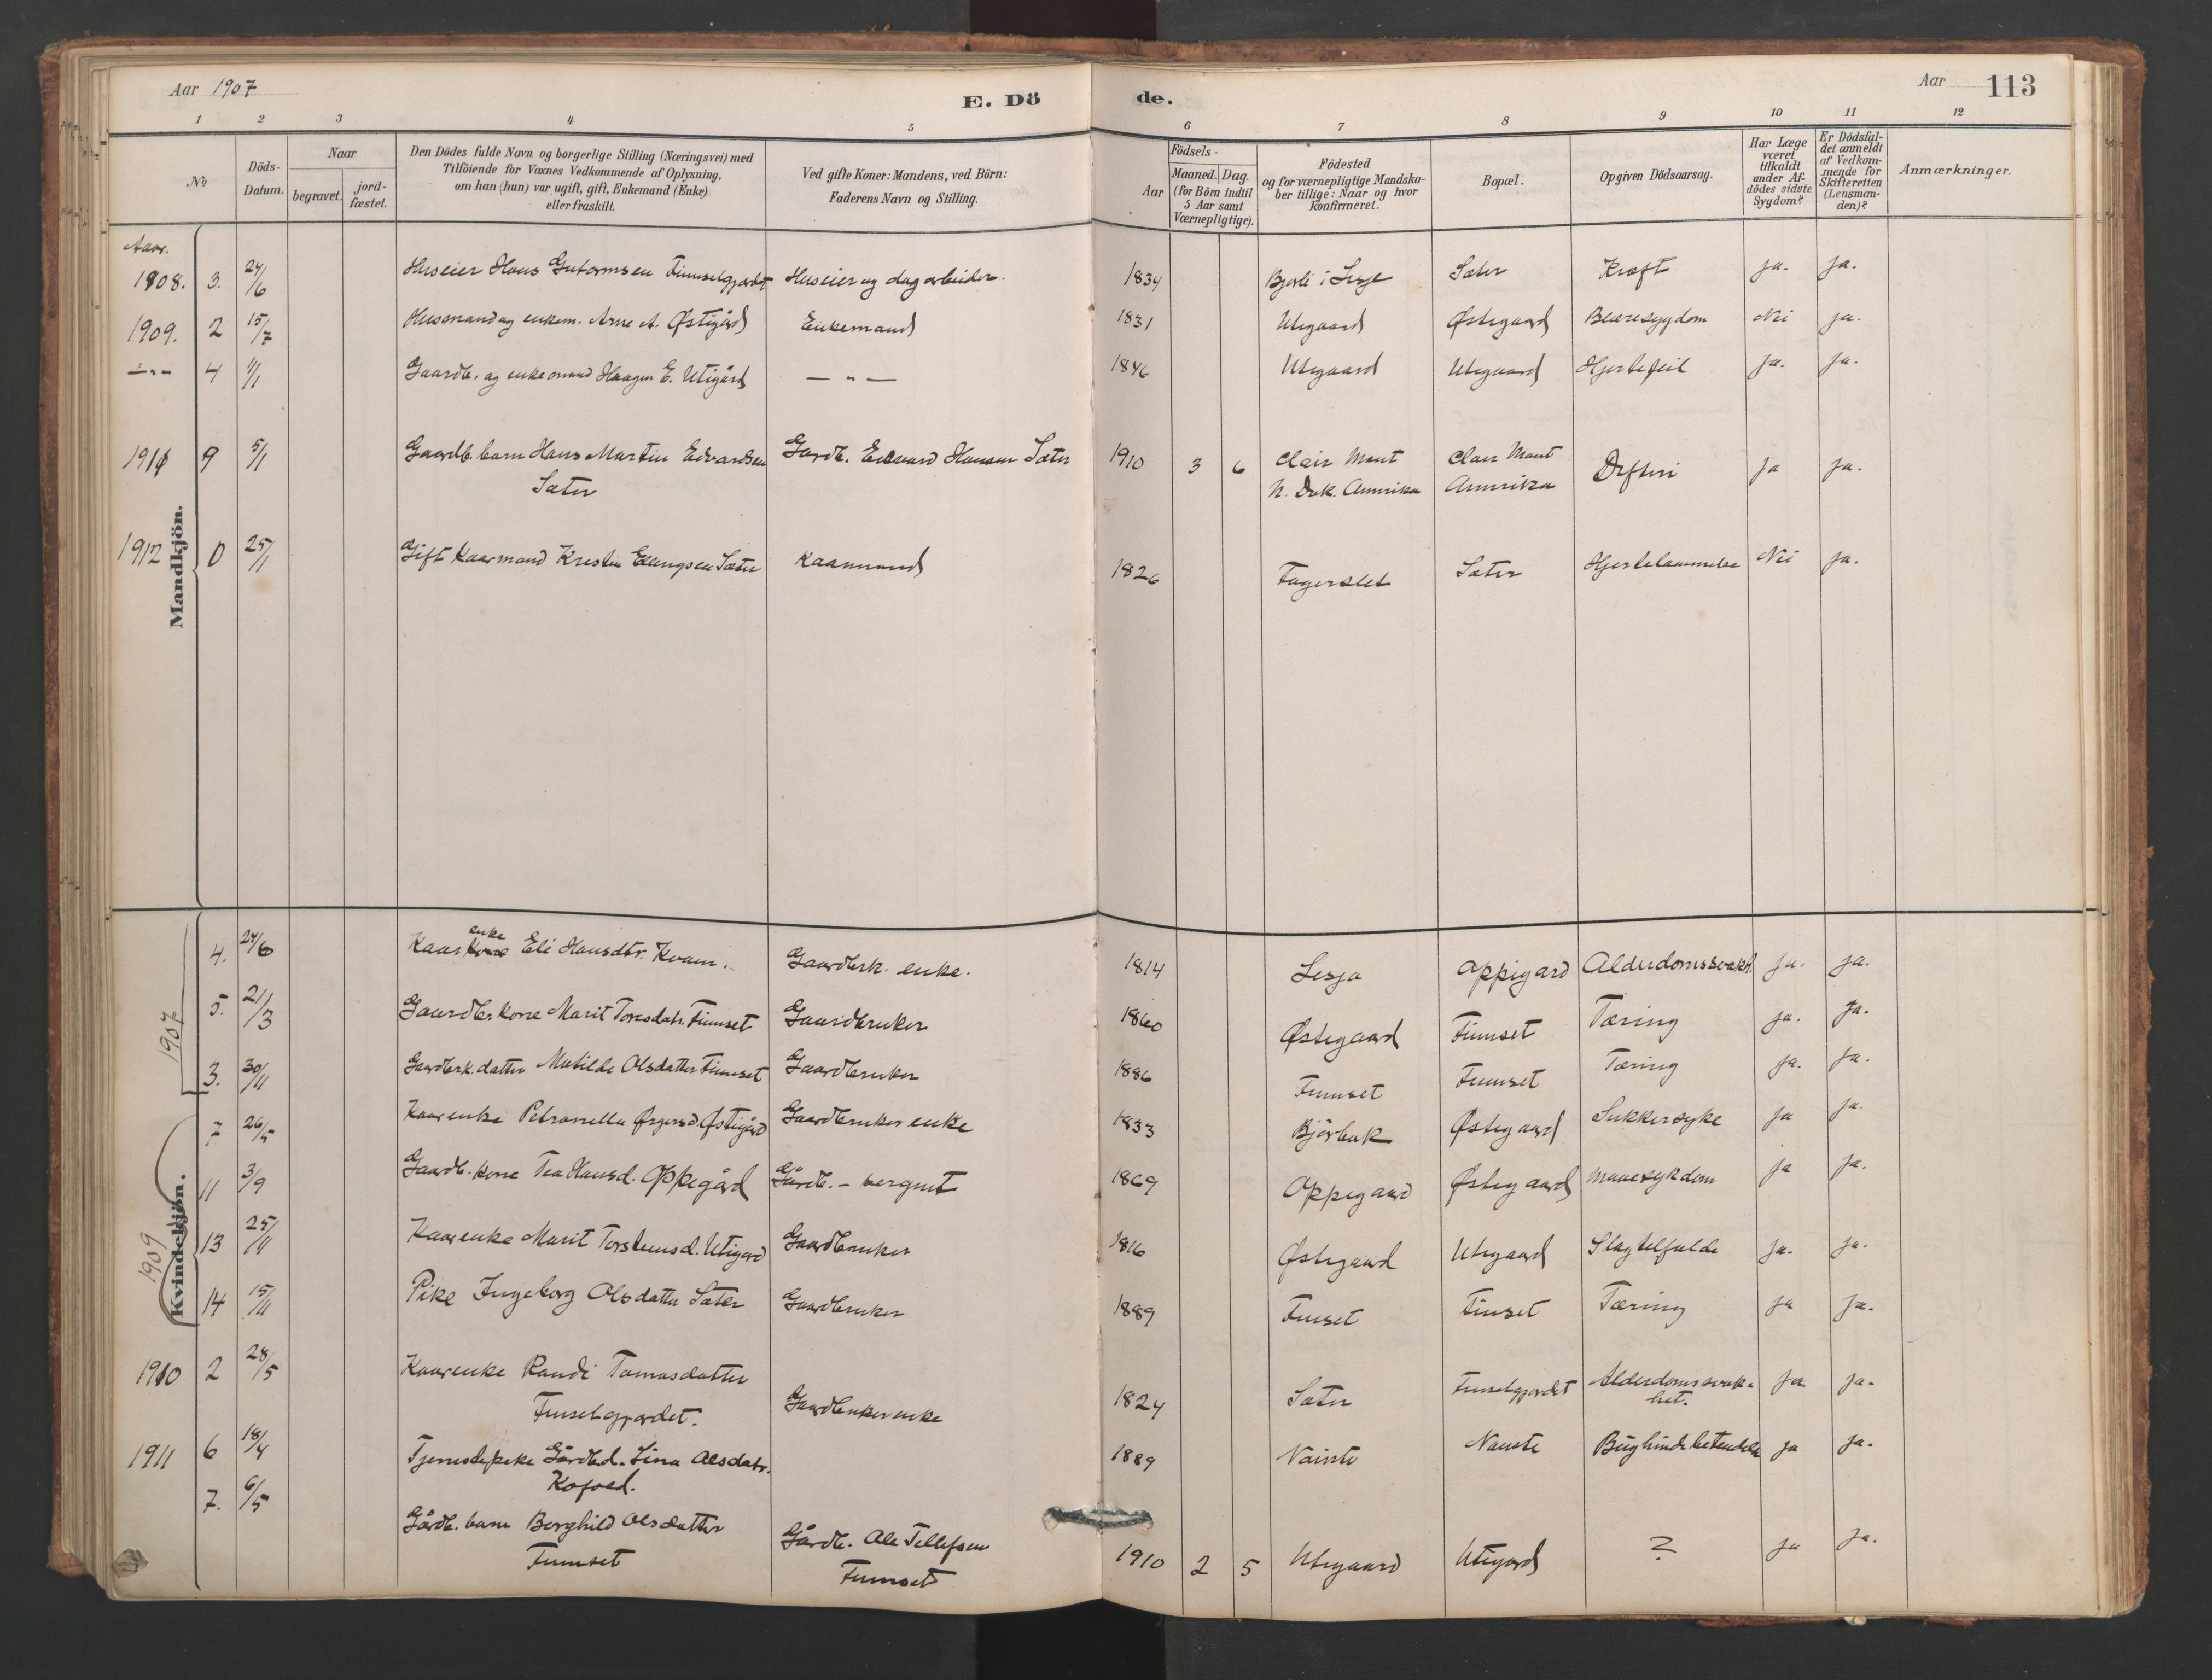 Aar 1907
E. Dö
de.
Aar
113
1 2 3 4 5 6 7 8 9 10 11 12
No
Döds-
Datum.
Naar
begravet.
jord-
fæstet.
Den Dödes fulde Navn og borgerlige Stilling (Næringsvei) med
Tilföiende for Voxnes Vedkommende af Oplysning,
om han (hun) var ugift, gift, Enkemand (Enke)
eller fraskilt.
Ved gifte Koner: Mandens, ved Börn:
Faderens Navn og Stilling.
Födsels-
Aar
Maaned. Dag.
(for Börn indtil
5 Aar samt
Værnepligtige).
Födested
og for værnepligtige Mandska-
ber tillige: Naar og hvor
konfirmeret.
Bopæl.
Opgiven Dödsaarsag.
Har Læge
været
tilkaldt
under Af-
dödes sidste
Sygdom?
Er Dödsfal-
det anmeldt
af Vedkom-
mende for
Skifteretten
(Lensman-
den)?
Anmærkninger.
Mandkjön.
Aar.
1908. 3. 24/6 Huseier Hans Gutormsen Huseier og dagarbeider. 1834 Bjorli i Lesje Sæter Kræft ja. ja.
1909. 2 15/7 Husmand og enkem. Arne A. Østigård Enkemand 1831 Utegaard Østegaard Blæresygdom Nei ja.
—"— 4 1/1 Gaardb. og enkemand Haagen E. Utigård —"— 1846 Utegaard Utegaard Hjertefeil ja. ja.
1911 9 5/1 Gaardb. barn Hans Martin Edvardsen Gardb. Edvard Hansen Sæter 1910 3 6 Clair Mont Clair Mont Difteri ja ja.
Sæter N. Dak. Amerika Amerika
1912 0 25/1 Gift Kaarmand Kristen Ellingsen Sæter Kaarmand 1826 Fagerslet Sæter Hjertelammelse Nei ja.
Kvindekjön.
1907
4. 24/6 Kaar enke Eli Hansdtr. Kvam. Gaardbrk. enke. 1814 Lesja Oppigard Alderdomssvakh. ja. ja.
5. 21/3 Gaardbr. kone Marit Toresdatr. Finnset Gaardbruker 1860 Østegaard Finnset Tæring ja. ja.
3. 30/11 Gardbrk. datter Matilde Olsdatter Finnset Gaardbruker 1886 Finnset Finnset Tæring ja. ja.
1909
7 26/5 Kaarenke Petronella Østigård Gaardbruker enke 1833 Bjørbak Østegaard Sukkersyke ja ja.
11 3/9 Gaardb. kone Tea Hansd. Oppegård Gårdb. – 1869 Oppegaard Østegaard Mavesykdom ja ja.
13 25/11 Kaarenke Marit Torsteinsd. Utigard Gaardbruker 1816 Østegaard Utegaard Slagtilfælde ja. ja.
14 15/11 Pike Ingeborg Olsdatter Sæter Gaardbruker 1889 Finset Finset Tæring ja ja.
1910 2 28/5 Kaarenke Randi Tomasdatter Gaardbruker enke 1824 Sæter Finsetgjerdet Alderdomssvak- ja ja.
Finsetgjerdet. het.
1911 6 18/4 Tjenestepike Gårdbd. Lina Olsdatr. 1889 Nauste Bughindebetændelse ja ja.
Kafoed.
7. 6/5 Gårdb. barn Borghild Olsdatter Gårdb. Ole Tellefsen 1910 2 5 Utegaard Utegard ? ja ja.
Finnset Finnset